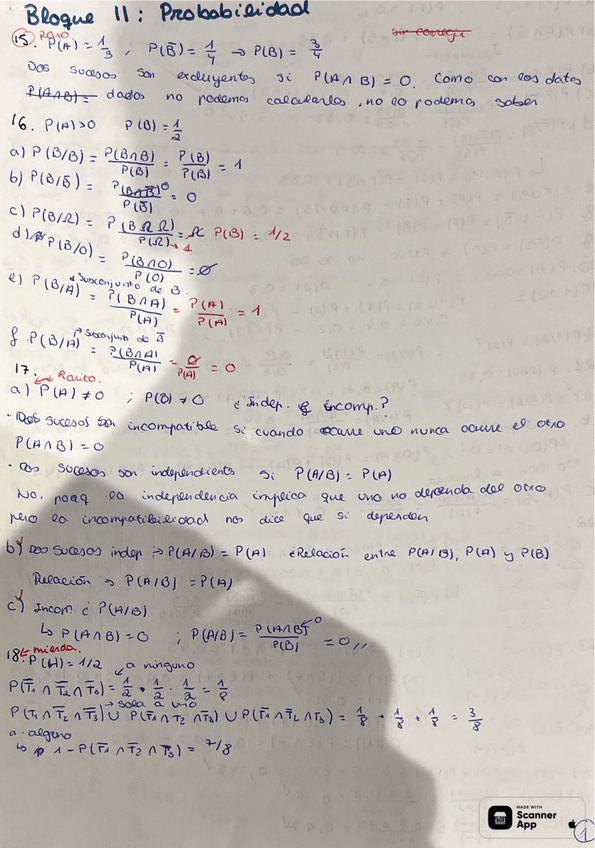 Bloque 11: Probabilidad
Raro sin corregir
15. P(A) = 1/3 ; P(B̅) = 1/4 → P(B) = 3/4
Dos sucesos son excluyentes si P(A∩B) = 0. Como con los datos
P(A∩B) = dados no podemos calcularlos, no lo podemos saber
16. P(A)>0 P(B) = 1/2
a) P(B/B) = P(B∩B)/P(B) = P(B)/P(B) = 1
b) P(B/B̅) = P(B∩B̅)/P(B̅) 0 = 0
c) P(B/Ω) = P(B∩Ω)/P(Ω) → 1 = P(B) = 1/2
d) P(B/∅) = P(B∩∅)/P(∅) = ∅
Subconjunto de B
e) P(B/A) = P(B∩A)/P(A) = P(A)/P(A) = 1
de B
f P(B/A) = P(B∩A)/P(A) = ∅/P(A) = 0
17. Rarito.
a) P(A) ≠ 0 ; P(B) ≠ 0 ¿Indep. y incomp.?
· Dos sucesos son incompatible si cuando ocurre uno nunca ocurre el otro
P(A∩B) = 0
· Dos sucesos son independients si P(A/B) = P(A)
No, porq la independencia implica que uno no dependa del otro
pero la incompatibilidad nos dice que si dependen
b) Dos sucesos indep → P(A/B) = P(A) ¿Relación entre P(A/B), P(A) y P(B)
Relación → P(A/B) = P(A)
c) Incom ¿ P(A/B)
↳ P(A∩B) = 0 ; P(A/B) = P(A∩B)/P(B) 0 = 0,,
18. mierda.
P(H) = 1/2 a ninguno
P(T̅₁ ∩ T̅₂ ∩ T̅₃) = 1/2 · 1/2 · 1/2 = 1/8
→ solo a uno
P(T₁ ∩ T̅₂ ∩ T̅₃) ∪ P(T̅₁ ∩ T₂ ∩ T̅₃) ∪ P(T̅₁ ∩ T̅₂ ∩ T₃) = 1/8 + 1/8 + 1/8 = 3/8
a alguno
↳ 1 - P(T̅₁ ∩ T̅₂ ∩ T̅₃) = 7/8
MADE WITH
Scanner
App
1